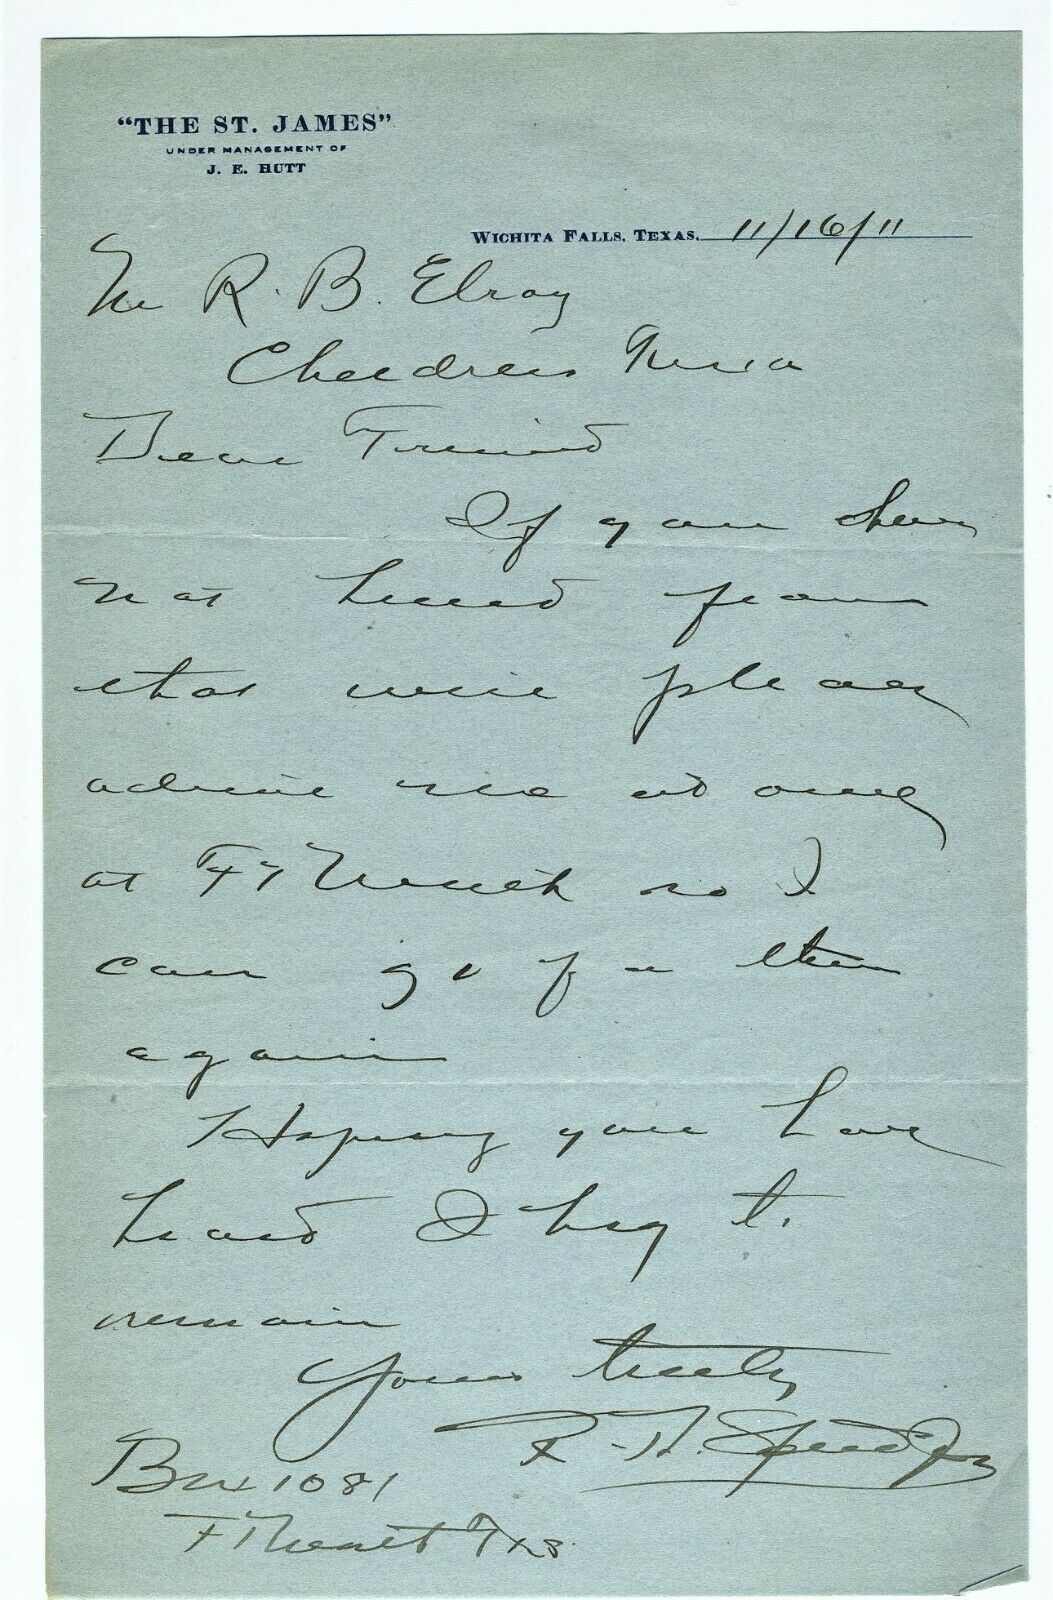 "THE ST. JAMES"
UNDER MANAGEMENT OF
J. E. HUTT
WICHITA FALLS, TEXAS, 11/16/11
Mr R. B. Elroy
Childress Texas
Dear Friend
If you have
not heard from
that wire please
advise me at once
at Ft Worth so I
can go for them
again
Hoping you have
heard I beg to
remain
Yours truly
R. H.
Box 1081
Ft Worth Txs.